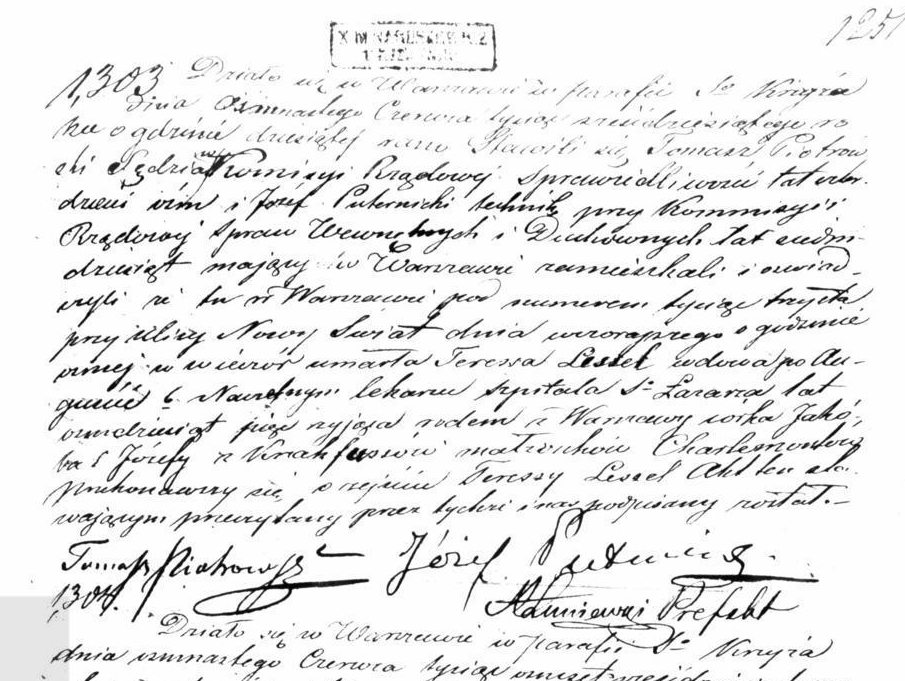 125
1,303 Działo się w Warszawie w parafii Sgo Krzyża
dnia Osimnastego Czerwca tysiąc sześćdziesiątego ro
ku o godzinie dziesiątej rano Stawili się, Tomasz Piotrow
ski Sędzia Kommisyi Rządowej Sprawiedliwości lat
dzieści ośm i Józef Puternicki technik przy Kommisyi
Rządowej Spraw Wewnętrznych i Duchownych lat siedm-
dziesiąt mający w Warszawie zamieszkali i oświad-
czyli że tu w Warszawie pod numerem tysiąc trzysta
przy Ulicy Nowy Świat dnia wczorajszego o godzinie
ósmej w wieczór umarła Teressa Lessel wdowa po Au-
guście b. Naczelnym lekarzu szpitala Sgo Łazarza lat
osmdziesiąt pięć żyjąca rodem z Warszawy córka Jakó,
ba i Józefy z małżonków
Przekonawszy się o zejściu Teressy Lessel Akt ten sta-
wającym przeczytany przez tychże i nas podpisany został.-
Tomasz Piotrowski Józef
1304. Prefekt
Działo się w Warszawie w parafii Sgo Krzyża
dnia osmnastego Czerwca tysiąc